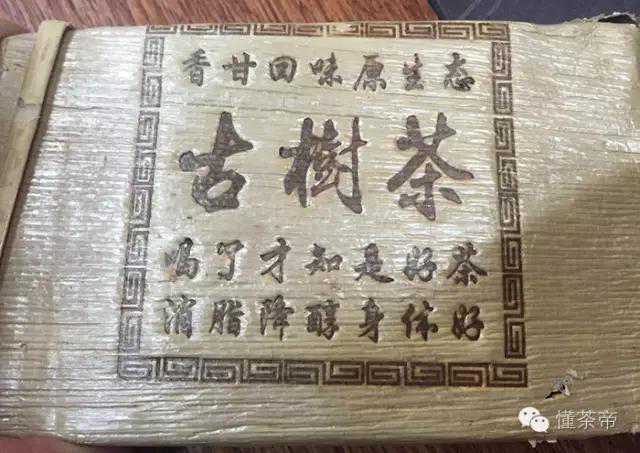 香甘回味原生态
古樹茶
喝了才知是好茶
消脂降醇身体好
懂茶帝